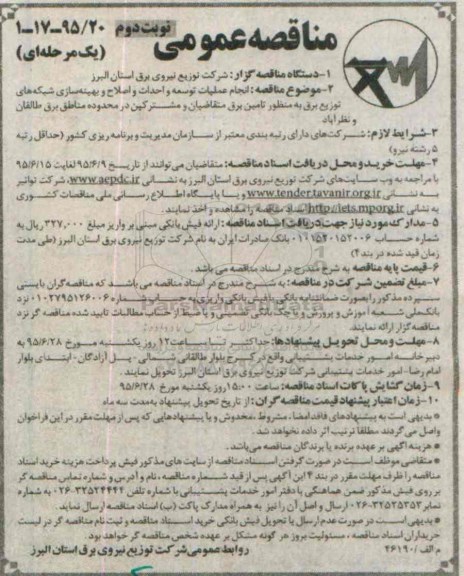 مناقصه عمومی
نوبت دوم
۱-۱۷-۹۵/۲۰
(یک مرحله ای)
۱-دستگاه مناقصه گزار: شرکت توزیع نیروی برق استان البرز
۲-موضوع مناقصه: انجام عملیات توسعه و احداث و اصلاح و بهینه‌سازی شبکه‌های
توزیع برق به منظور تامین برق متقاضیان و مشترکین در محدوده مناطق برق طالقان
و نظرآباد
۳-شرایط لازم: شرکت‌های دارای رتبه بندی معتبر از سازمان مدیریت و برنامه ریزی کشور (حداقل رتبه
۵ رشته نیرو)
۴-مهلت خرید و محل دریافت اسناد مناقصه: متقاضیان می‌توانند از تاریخ ۹۵/۶/۹ لغایت ۹۵/۶/۱۵
با مراجعه به وب سایت‌های شرکت توزیع نیروی برق استان البرز به نشانی www.aepdc.ir، شرکت توانیر
به نشانی www.tender.tavanir.org.ir و یا پایگاه اطلاع رسانی ملی مناقصات کشوری
به نشانی http://iets.mporg.ir اسناد مناقصه را مشاهده و اخذ نمایند.
۵-مدارک مورد نیاز جهت دریافت اسناد مناقصه: ارائه فیش بانکی مبنی بر واریز مبلغ ۳۲۷,۰۰۰ ریال به
شماره حساب ۰۱۰۱۵۲۰۱۵۲۰۰۶ بانک صادرات ایران به نام شرکت توزیع نیروی برق استان البرز (طی مدت
زمان قید شده در بند ۴)
۶-قیمت پایه مناقصه به شرح مندرج در اسناد مناقصه می باشد.
۷-مبلغ تضمین شرکت در مناقصه: به شرح مندرج در اسناد مناقصه می باشد که مناقصه‌گران بایستی
سپرده مذکور را بصورت ضمانتنامه بانکی یا فیش بانکی واریزی به حساب شماره ۰۱۰۲۷۹۵۱۲۶۰۰۶ نزد
بانک ملی شعبه آموزش و پرورش و یا چک بانکی تضمین شده و یا از محل مطالبات تایید شده مناقصه گر نزد
مناقصه گزار ارائه نمایند.
۸-مهلت و محل تحویل پیشنهادها: حداکثر تا ساعت ۱۲ روز یکشنبه مورخ ۹۵/۶/۲۸ به
دبیرخانه امور خدمات پشتیبانی واقع در کرج بلوار طالقانی شمالی - پل آزادگان - ابتدای بلوار
امام رضا - امور خدمات پشتیبانی شرکت توزیع نیروی برق استان البرز تحویل نمایند.
۹-زمان گشایش پاکات اسناد مناقصه: ساعت ۱۵:۰۰ روز یکشنبه مورخ ۹۵/۶/۲۸
۱۰-زمان اعتبار پیشنهاد قیمت مناقصه گران: از تاریخ تحویل پیشنهاد به مدت سه ماه
* بدیهی است به پیشنهادهای فاقد امضا، مشروط، مخدوش و یا پیشنهادهایی که پس از مهلت مقرر در این فراخوان
واصل می گردند مطلقا ترتیب اثر داده نخواهد شد.
* هزینه آگهی بر عهده برنده یا برندگان مناقصه می‌باشد.
* متقاضی موظف است در صورت گرفتن اسناد مناقصه از سایت های مذکور فیش پرداخت هزینه خرید اسناد
مناقصه را ظرف مهلت مقرر در بند ۴ این آگهی پس از قید شماره مناقصه، نام و آدرس و شماره تماس مناقصه گر
بر روی فیش مذکور ضمن هماهنگی با دفتر امور خدمات پشتیبانی با شماره تلفن ۰۲۶-۳۲۵۲۴۴۴۲ به شماره
نمابر ۰۲۶-۳۲۵۲۵۳۵۳ ارسال و اصل آن را نیز به همراه مدارک پاکت (ب) اسناد مناقصه ارسال نماید.
* بدیهی است در صورت عدم ارسال یا تحویل فیش بانکی خرید اسناد مناقصه و ثبت نام مناقصه گر در لیست
خریداران اسناد مناقصه، مسئولیت بروز هر گونه مشکل بر عهده شخص مناقصه گر خواهد بود.
م الف / ۲۶۱۹۰
روابط عمومی شرکت توزیع نیروی برق استان البرز